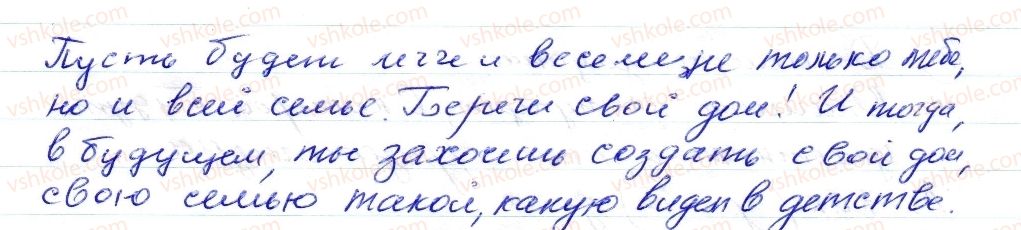 Пусть будет легче и веселей не только тебе,
но и всей семье. Береги свой дом! И тогда,
в будущем, ты захочешь создать свой дом,
свою семью такой, какую видел в детстве.